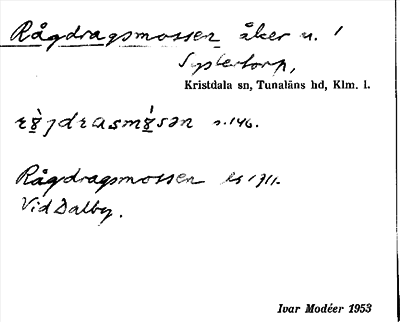 Rågdragsmossen åker u. 1
Systertorp,
Kristdala sn, Tunaläns hd, Klm. l.
s. 146.
Rågdragsmossen 1711.
Vid Dalby.
Ivar Modéer 1953